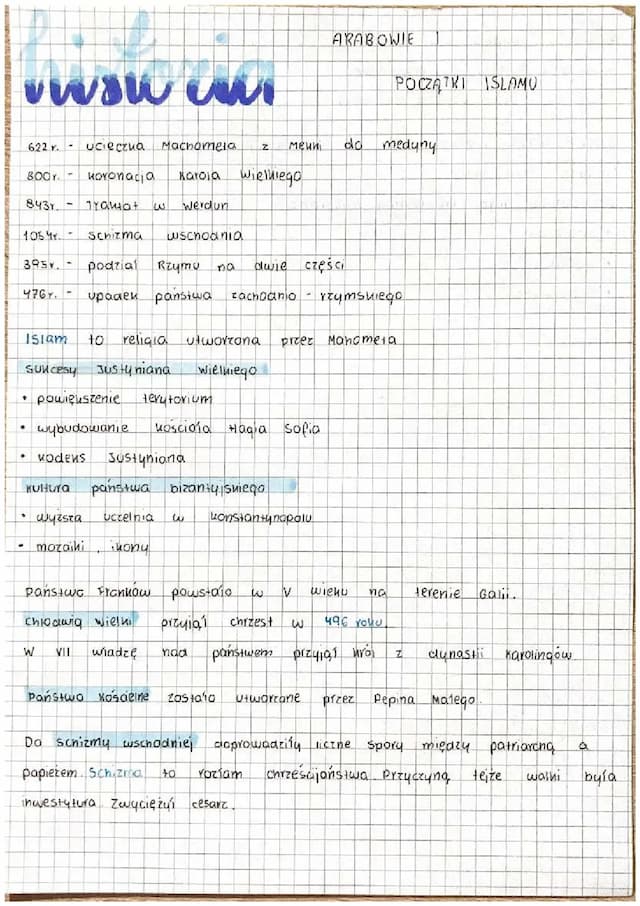 historia
ARABOWIE I
POCZĄTKI ISLAMU
622r. - ucieczka Machometa z Mekki do medyny
800r. - koronacja Karola Wielkiego
843r. - Traktat w Werdun
1054r. - schizma wschodnia
395r. - podział Rzymu na dwie części
476r. - upadek państwa zachodnio - rzymskiego
Islam to religia utworzona przez Mahometa
Sukcesy Justyniana Wielkiego
• powiększenie terytorium
• wybudowanie kościoła Hagia Sofia
• kodeks Justyniana
kultura państwa bizantyjskiego
• wyższa uczelnia w konstantynopolu
• mozaiki, ikony
państwo Franków powstało w V wieku na terenie Galii.
Chlodwig wielki przyjął chrzest w 496 roku
W VII władzę nad państwem przyjął król z dynastii Karolingów
Państwo kościelne zostało utworzone przez Pepina Małego.
Do schizmy wschodniej doprowadziły liczne spory między patriarchą a
papieżem. Schizma to rozłam chrześcijaństwa. Przyczyną tejże walki była
inwestytura. Zwyciężył cesarz.